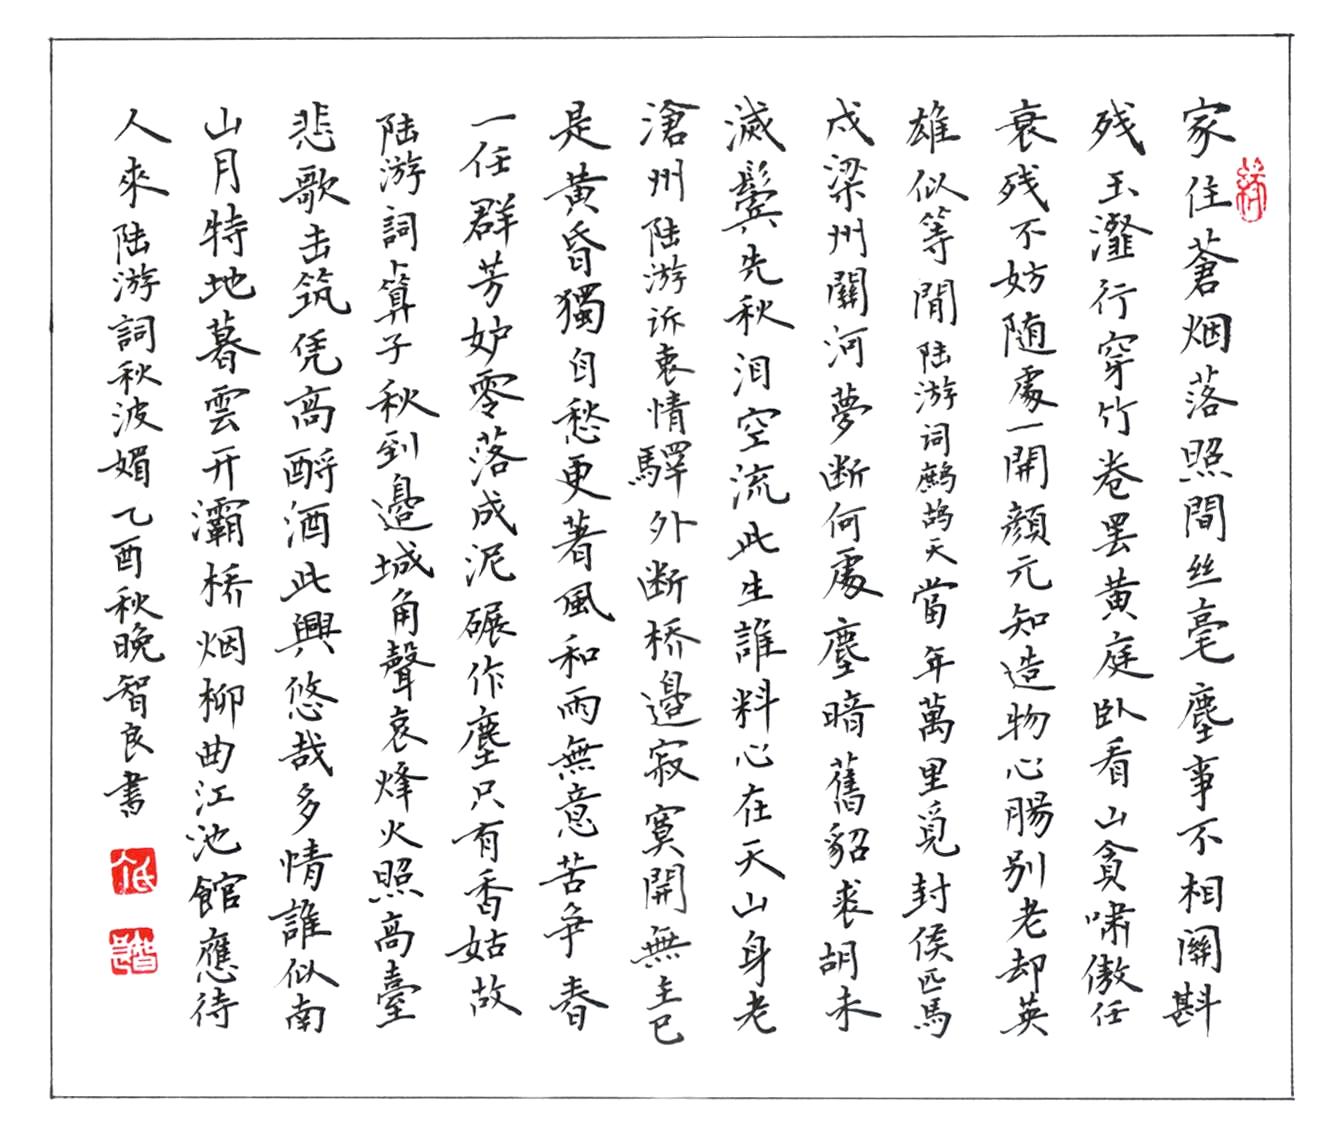 家住蒼烟落照間丝毫塵事不相關斟
残玉瀣行穿竹卷罢黄庭卧看山貪啸傲任
衰残不妨随處一開顔元知造物心腸别老却英
雄似等閒陆游词鹧鸪天當年萬里觅封侯匹馬
戍梁州關河夢断何處塵暗舊貂裘胡未
滅鬓先秋泪空流此生誰料心在天山身老
滄州陆游诉衷情驛外断桥邉寂寞開無主已
是黄昏獨自愁更著風和雨無意苦争春
一任群芳妒零落成泥碾作塵只有香姑故
陆游詞卜算子秋到邉城角聲哀烽火照高臺
悲歌击筑凭高酹酒此興悠哉多情誰似南
山月特地暮雲开灞桥烟柳曲江池館應待
人來陆游詞秋波媚乙酉秋晚智良書